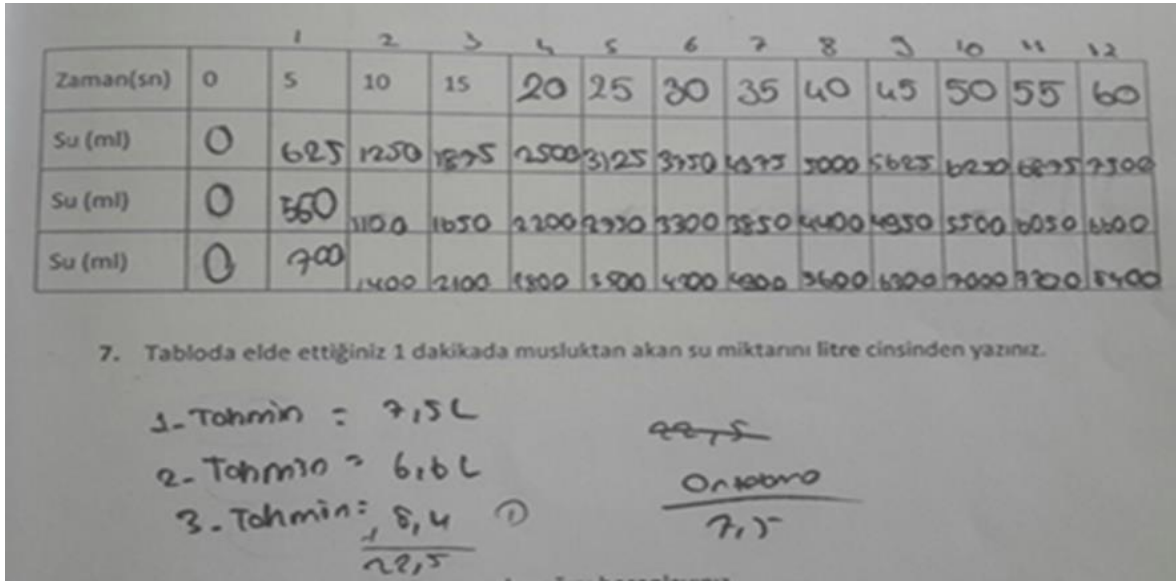 1 2 3 4 5 6 7 8 9 10 11 12
Zaman(sn) 0 5 10 15 20 25 30 35 40 45 50 55 60
Su (ml) 0 625 1250 1875 2500 3125 3750 4375 5000 5625 6250 6875 7500
Su (ml) 0 550 1100 1650 2200 2750 3300 3850 4400 4950 5500 6050 6600
Su (ml) 0 700 1400 2100 2800 3500 4200 4900 5600 6300 7000 7700 8400
7. Tabloda elde ettiğiniz 1 dakikada musluktan akan su miktarını litre cinsinden yazınız.
1-Tahmin = 7,5L
2-Tahmin = 6,6L
3-Tahmin = 8,4
22,5
22,5
Ortalama
7,5